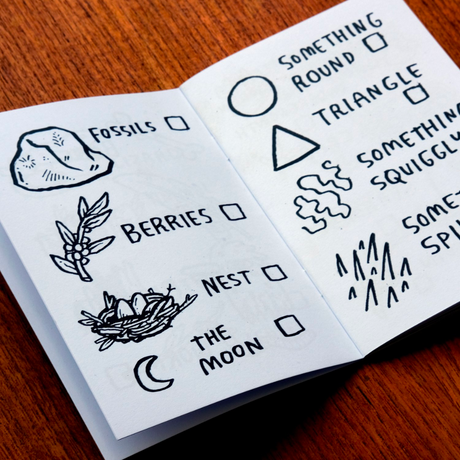 FOSSILS
BERRIES
NEST
THE
MOON
SOMETHING
ROUND
TRIANGLE
SOMETHING
SQUIGGLY